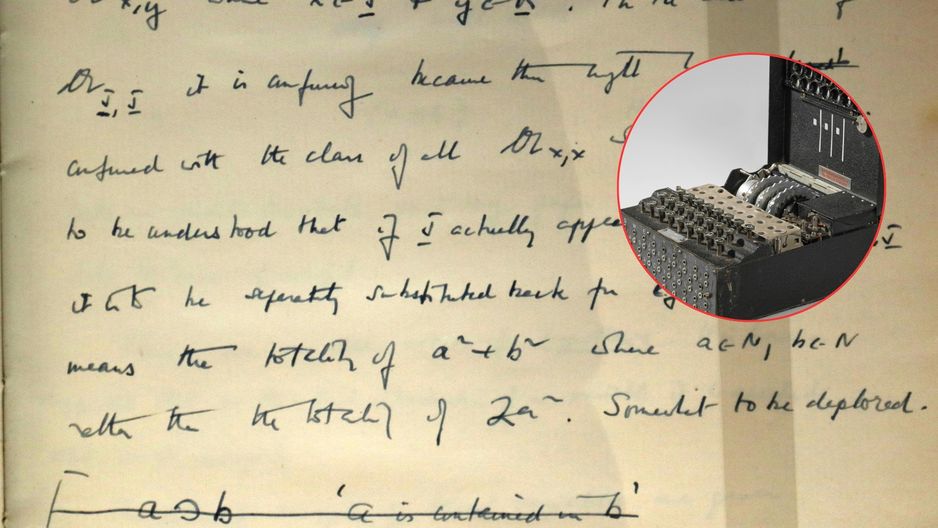 x,y where x∈I & y∈
𝔄 I,I it is confusing because this might
confused with the class of all 𝔄 x,x
to be understood that if I actually appe ,I
it is to be separately substituted back for
means the totality of a²+b² where a∈N, b∈N
rather than the totality of 2a². Somewhat to be deplored.
[ a ⊃ b 'a is contained in b'